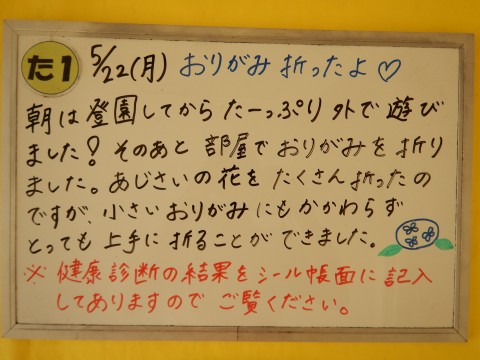 た1 5/22(月) おりがみ折ったよ♡
朝は登園してからたーっぷり外で遊び
ました!そのあと部屋でおりがみを折り
ました。あじさいの花をたくさん折ったの
ですが、小さいおりがみにもかかわらず
とっても上手に折ることができました。
※健康診断の結果をシール帳面に記入
してありますのでご覧ください。